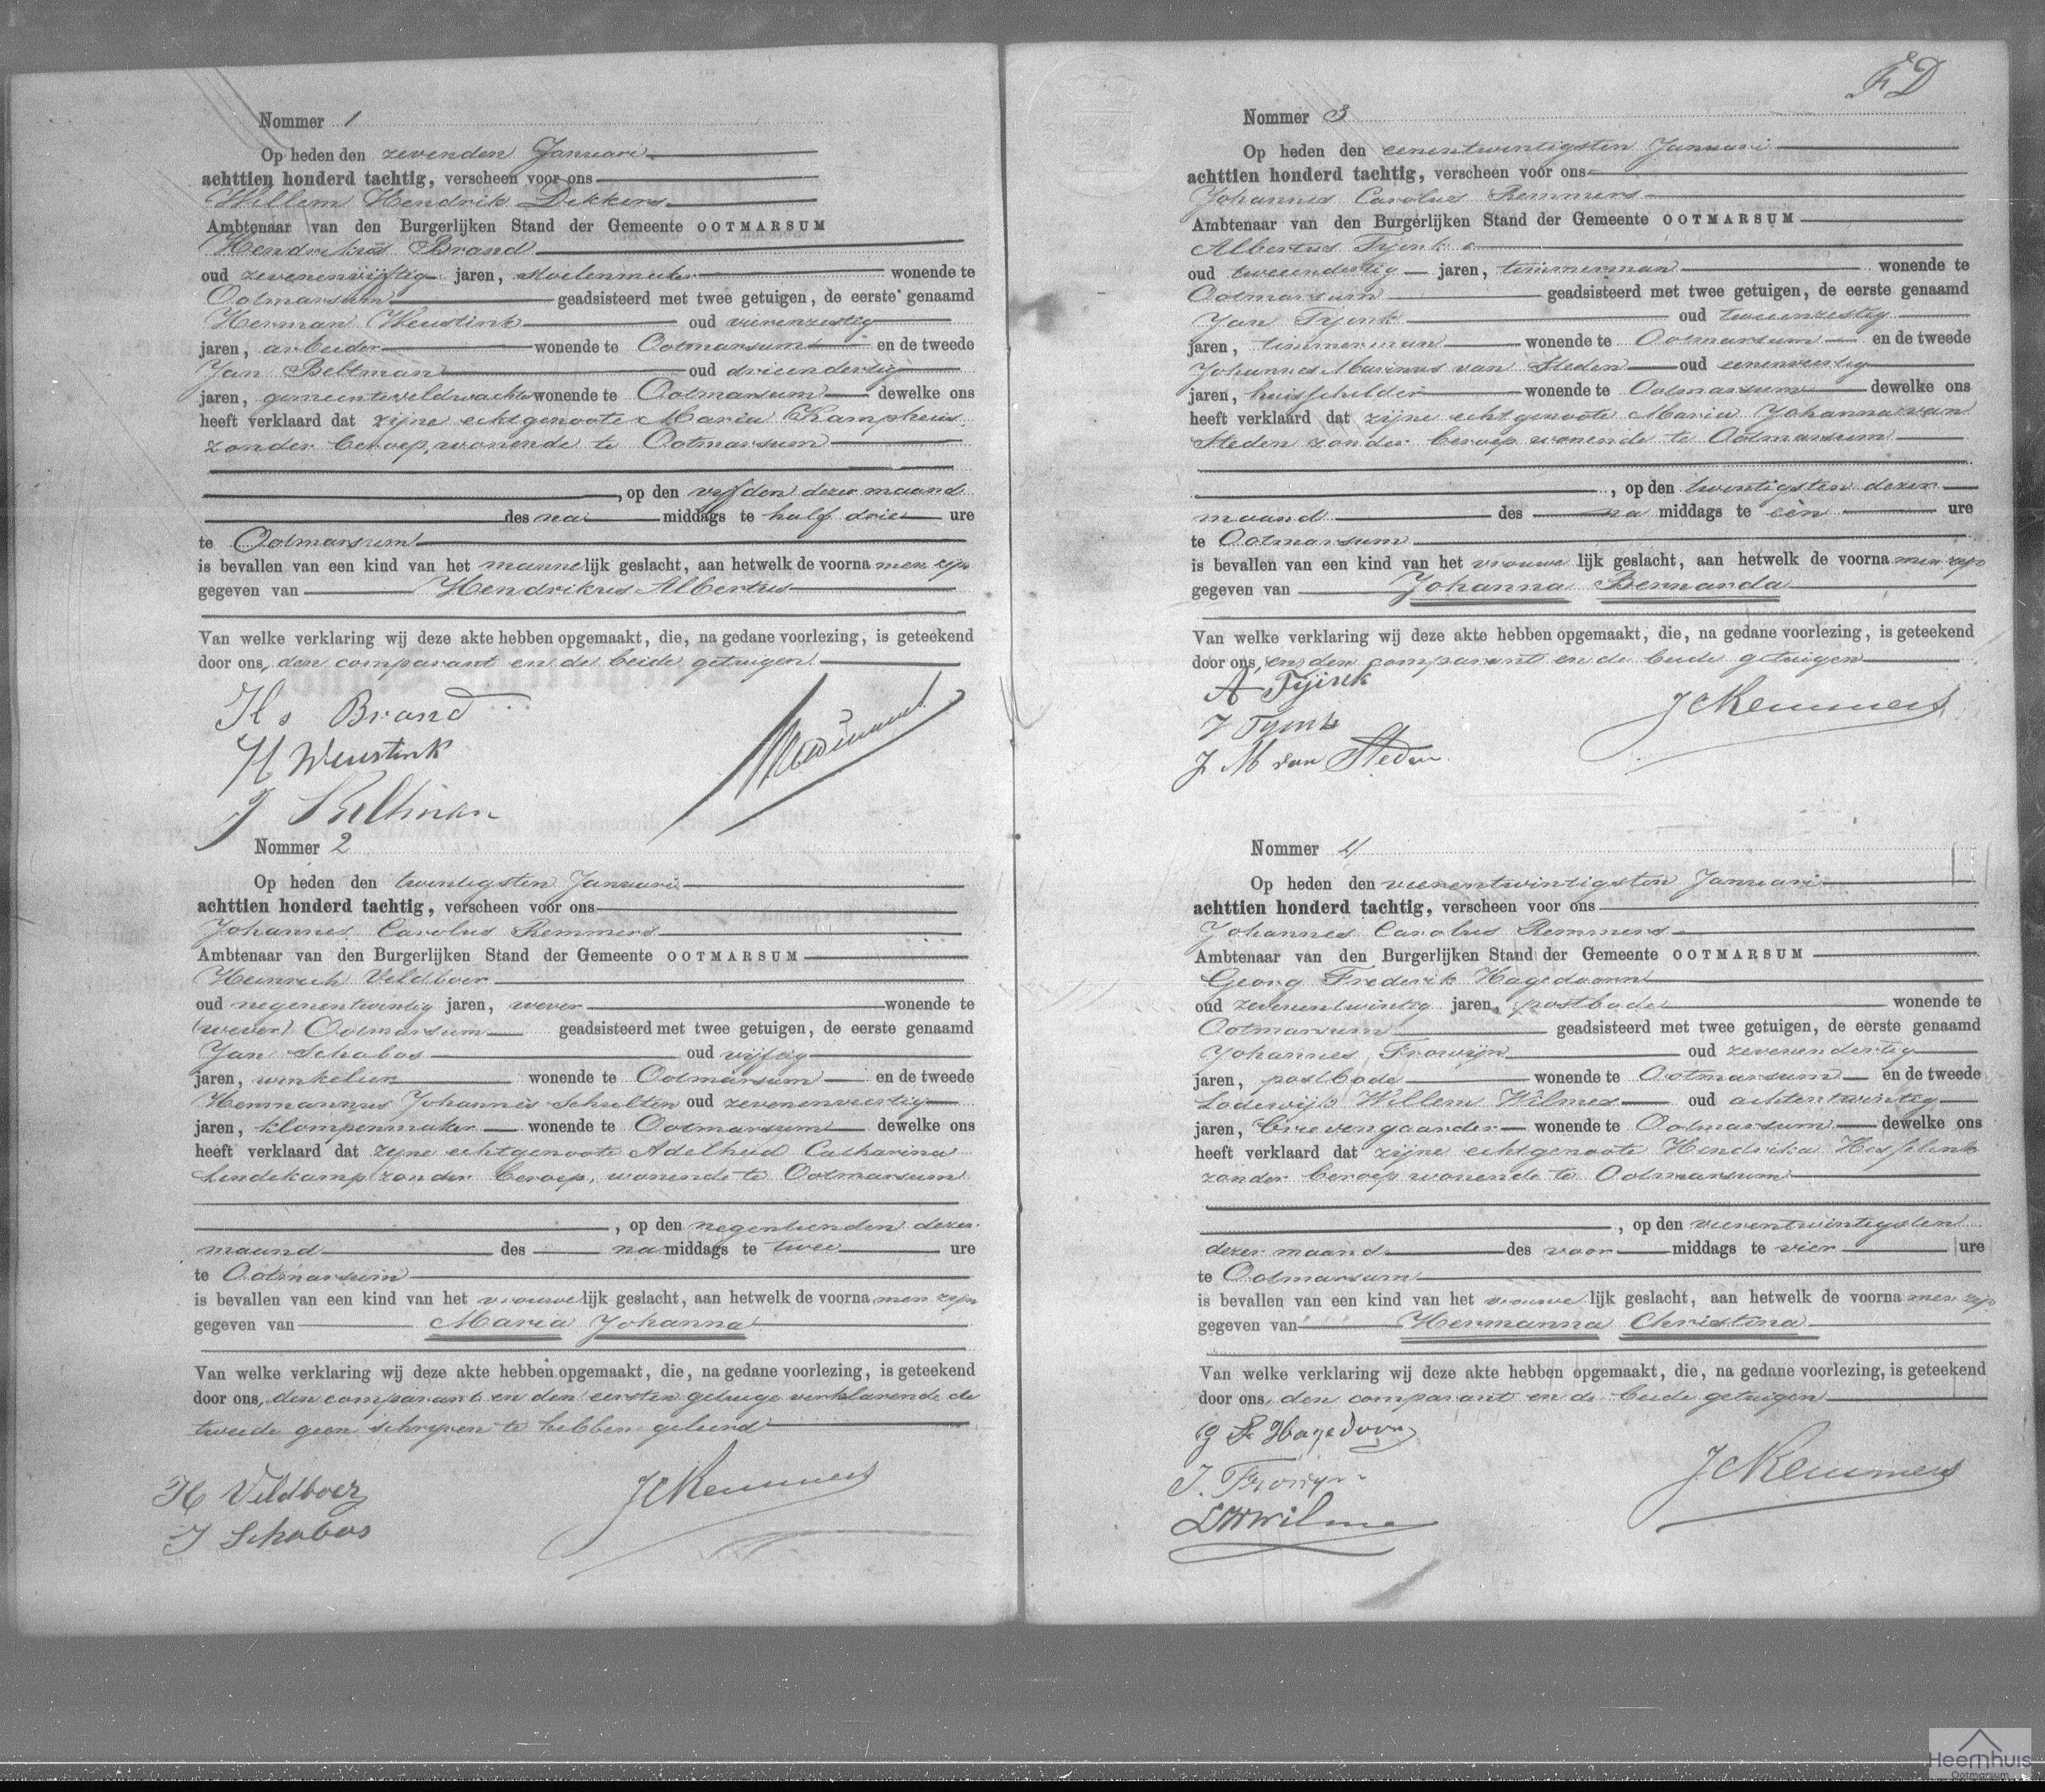 Nommer 1
Op heden den zevenden Januari
achttien honderd tachtig, verscheen voor ons
Willem Hendrik Dekkers
Ambtenaar van den Burgerlijken Stand der Gemeente OOTMARSUM
Hendrikus Brand
oud zevenenvijftig jaren, stoelenmaker wonende te
Ootmarsum geadsisteerd met twee getuigen, de eerste genaamd
Herman Weustink oud vierenzestig
jaren, arbeider wonende te Ootmarsum en de tweede
Jan Beltman oud drieendertig
jaren, gemeenteveldwachter wonende te Ootmarsum dewelke ons
heeft verklaard dat zijne echtgenoote Maria Kamphuis
zonder beroep, wonende te Ootmarsum
, op den vijfden dezer maand
des na middags te half drie ure
te Ootmarsum
is bevallen van een kind van het mannelijk geslacht, aan hetwelk de voornamen zijn
gegeven van Hendrikus Albertus
Van welke verklaring wij deze akte hebben opgemaakt, die, na gedane voorlezing, is geteekend
door ons, den comparant en de beide getuigen.
Hs Brand
H Weustink
J Beltman
Nommer 2
Op heden den twintigsten Januari
achttien honderd tachtig, verscheen voor ons
Johannes Carolus Remmers
Ambtenaar van den Burgerlijken Stand der Gemeente OOTMARSUM
Heinrich Veldboer
oud negenentwintig jaren, wever wonende te
(wever) Ootmarsum geadsisteerd met twee getuigen, de eerste genaamd
Jan Schabos oud vijftig
jaren, winkelier wonende te Ootmarsum en de tweede
Hermannus Johannes Schulten oud zevenenveertig
jaren, klompenmaker wonende te Ootmarsum dewelke ons
heeft verklaard dat zijne echtgenoote Adelheid Catharina
Lendekamp zonder beroep, wonende te Ootmarsum
, op den negentienden dezer
maand des na middags te twee ure
te Ootmarsum
is bevallen van een kind van het vrouwelijk geslacht, aan hetwelk de voornamen zijn
gegeven van Maria Johanna
Van welke verklaring wij deze akte hebben opgemaakt, die, na gedane voorlezing, is geteekend
door ons, den comparant en den eersten getuige verklarende de
tweede geen schrijven te hebben geleerd
H Veldboer
J Schabos
JCRemmers
FD
Nommer 3
Op heden den eenentwintigsten Januari
achttien honderd tachtig, verscheen voor ons
Johannes Carolus Remmers
Ambtenaar van den Burgerlijken Stand der Gemeente OOTMARSUM
Albertus Tyink
oud tweeendertig jaren, timmerman wonende te
Ootmarsum geadsisteerd met twee getuigen, de eerste genaamd
Jan Tyink oud tweeenzestig
jaren, timmerman wonende te Ootmarsum en de tweede
Johannes Marinus van Steden oud eenenveertig
jaren, huisschilder wonende te Ootmarsum dewelke ons
heeft verklaard dat zijne echtgenoote Maria Johanna van
Steden zonder beroep wonende te Ootmarsum
, op den twintigsten dezer
maand des na middags te een ure
te Ootmarsum
is bevallen van een kind van het vrouwelijk geslacht, aan hetwelk de voornamen zijn
gegeven van Johanna Bernarda
Van welke verklaring wij deze akte hebben opgemaakt, die, na gedane voorlezing, is geteekend
door ons, en den comparant en de beide getuigen
A Tyink
J Tyink
J M van Steden
JCRemmers
Nommer 4
Op heden den vierentwintigsten Januari
achttien honderd tachtig, verscheen voor ons
Johannes Carolus Remmers
Ambtenaar van den Burgerlijken Stand der Gemeente OOTMARSUM
Georg Frederik Hagedoorn
oud zevenentwintig jaren, postbode wonende te
Ootmarsum geadsisteerd met twee getuigen, de eerste genaamd
Johannes Frowijn oud zevenendertig
jaren, postbode wonende te Ootmarsum en de tweede
Lodewijk Willem Wilmes oud achtentwintig
jaren, brievengaarder wonende te Ootmarsum dewelke ons
heeft verklaard dat zijne echtgenoote Hendrika Hesselink
zonder beroep wonende te Ootmarsum
, op den vierentwintigsten
dezer maand des voor middags te vier ure
te Ootmarsum
is bevallen van een kind van het vrouwelijk geslacht, aan hetwelk de voornamen zijn
gegeven van Hermanna Christina
Van welke verklaring wij deze akte hebben opgemaakt, die, na gedane voorlezing, is geteekend
door ons, den comparant en de beide getuigen
G F Hagedoorn
J. Frowijn
LWWilmes
JCRemmers
Heemhuis
Ootmarsum